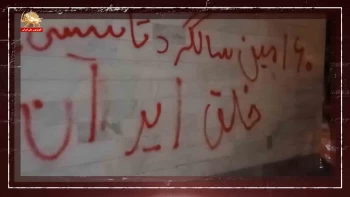 ۶۰مین سالگرد تاسیس
خلق ایر آن